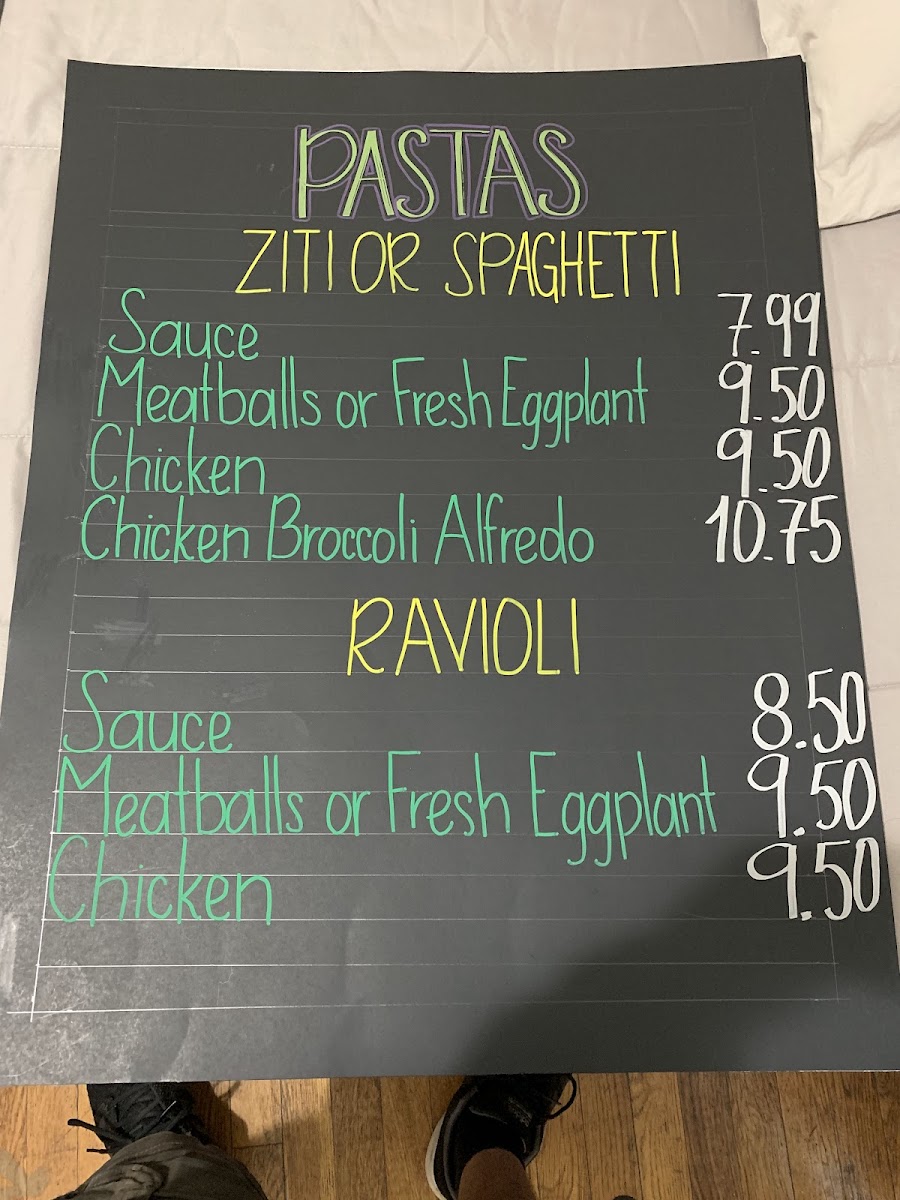 PASTAS
ZITI OR SPAGHETTI
Sauce 7.99
Meatballs or Fresh Eggplant 9.50
Chicken 9.50
Chicken Broccoli Alfredo 10.75
RAVIOLI
Sauce 8.50
Meatballs or Fresh Eggplant 9.50
Chicken 9.50